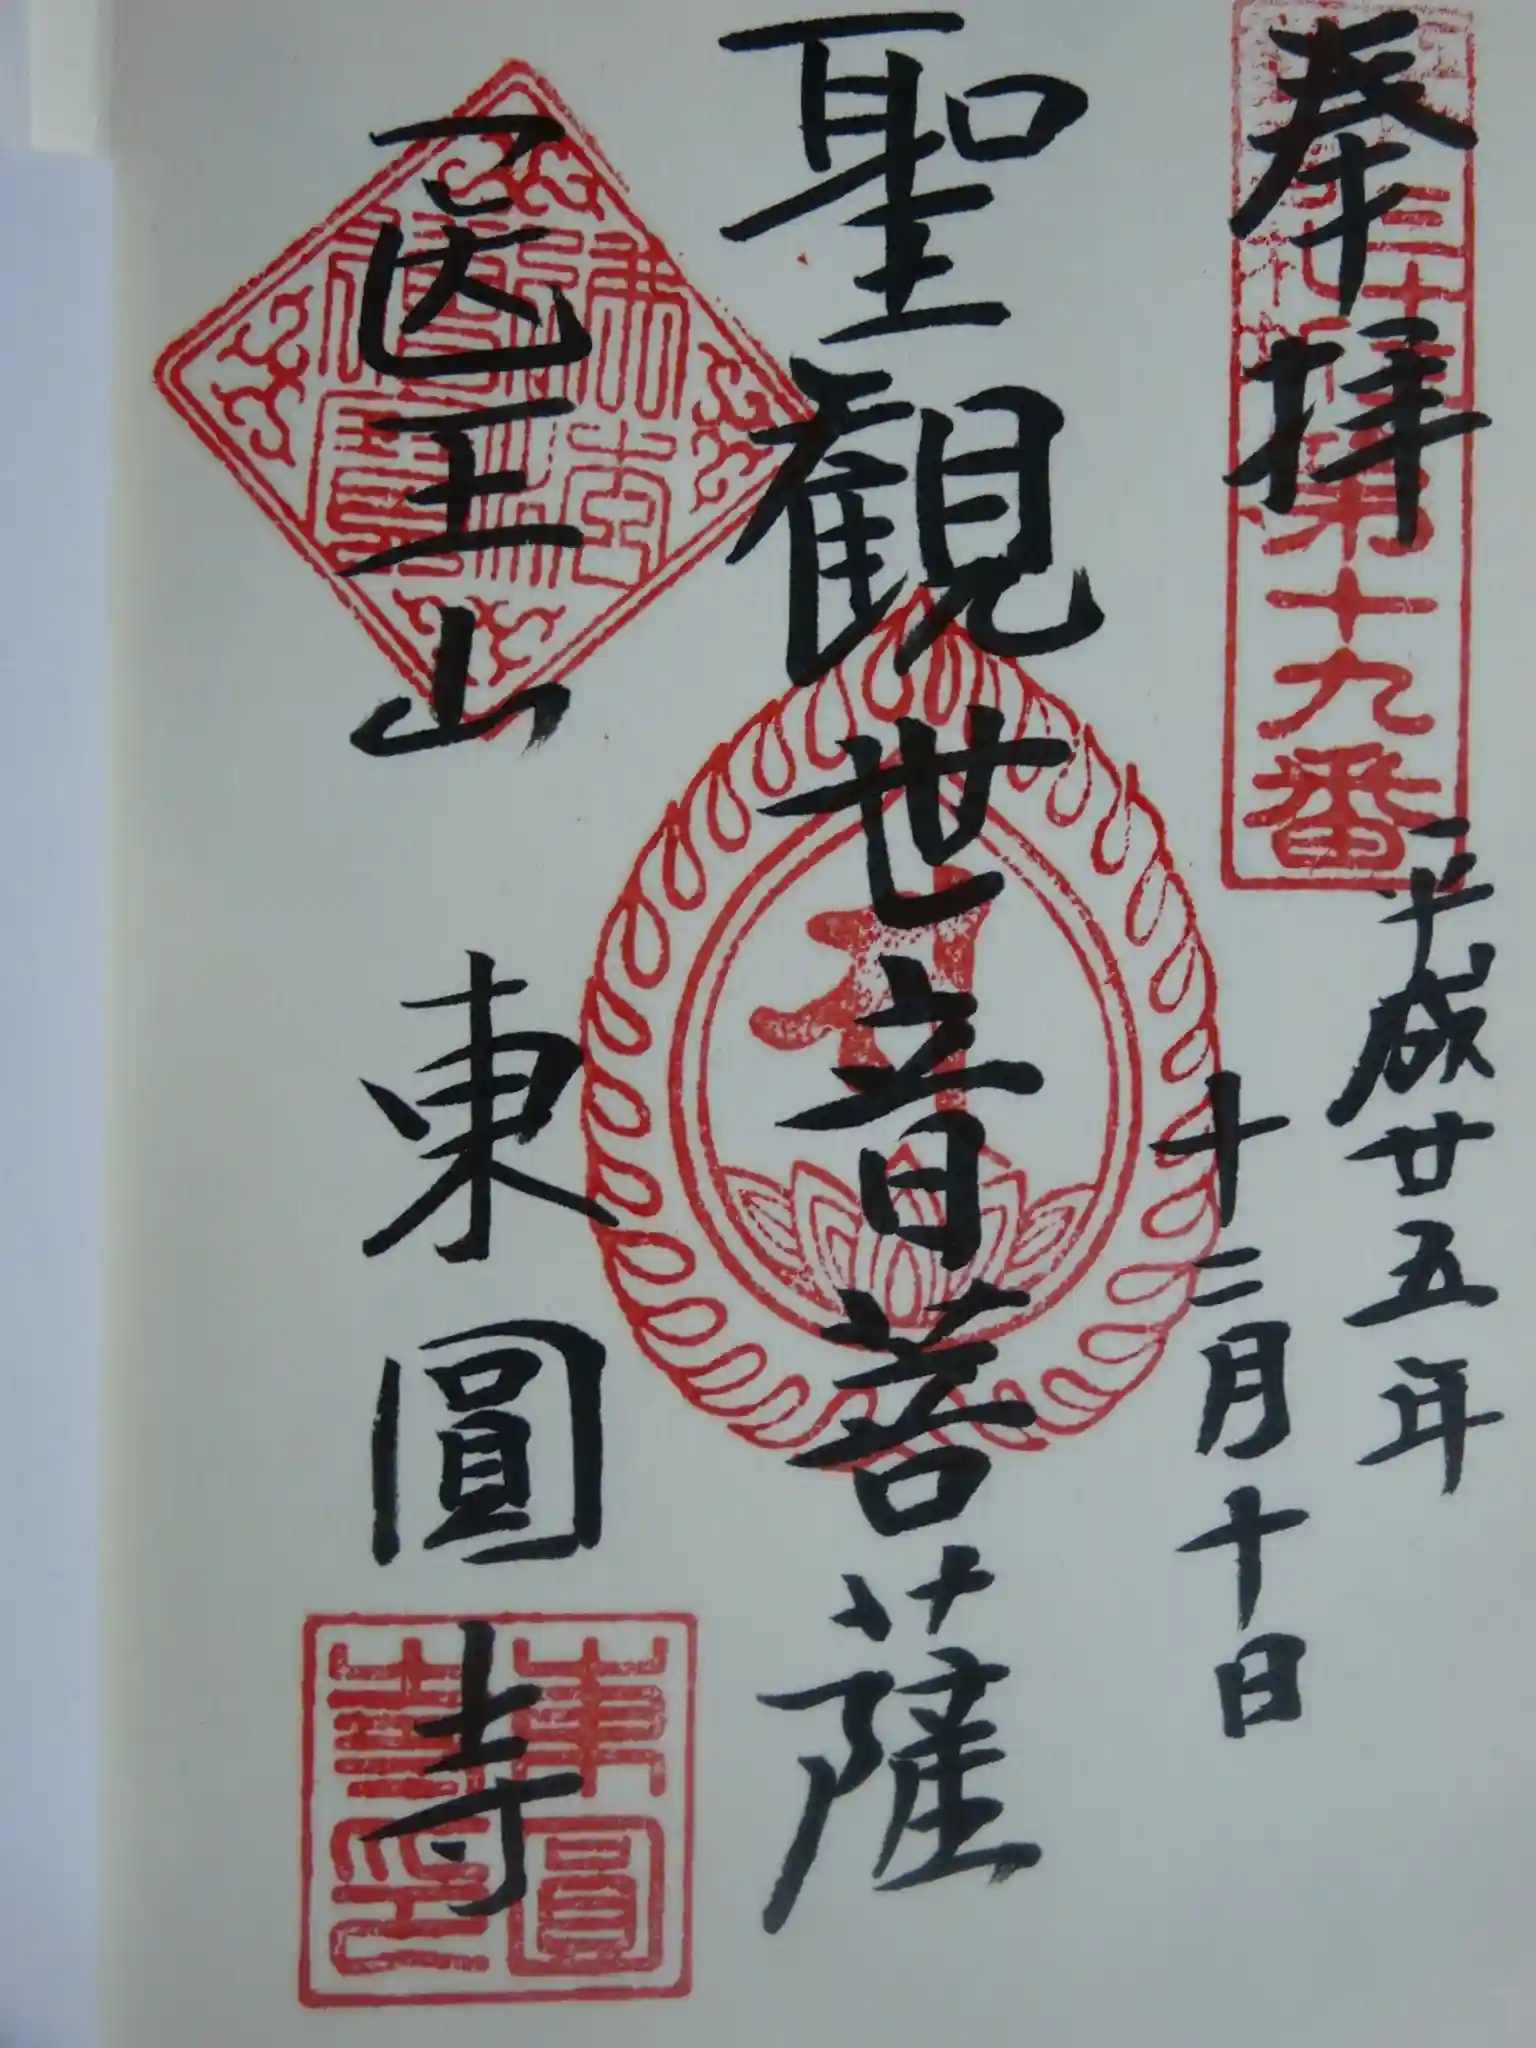 奉拝
第十九番
平成廿五年
十二月十日
聖観世音菩薩
医王山 東圓寺
佛法僧寶
東圓寺印